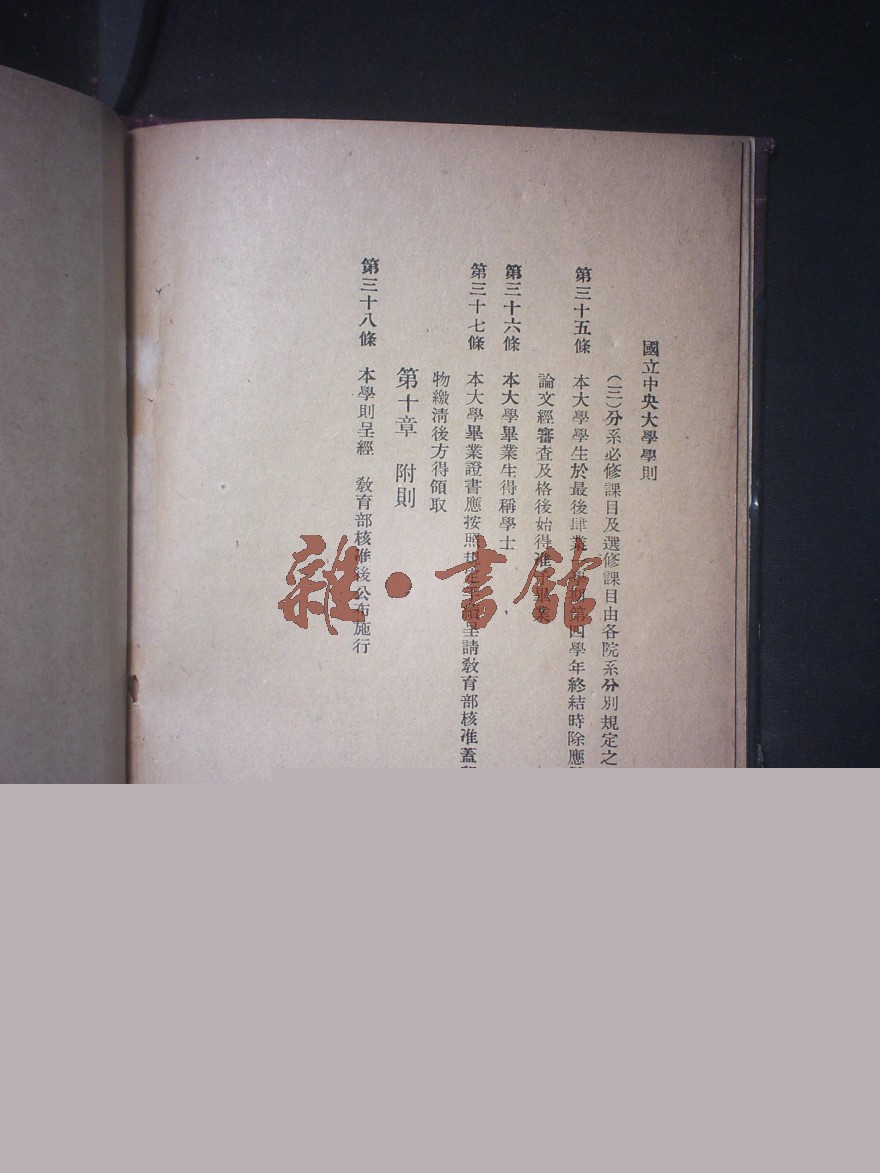 國立中央大學學則
(三)分系必修課目及選修課目由各院系分別規定之
第三十五條 本大學學生於最後肄業 學期第四學年終結時除應
論文經審查及格後始得准予畢業
第三十六條 本大學畢業生得稱學士
第三十七條 本大學畢業證書應按照規定手續呈請教育部核准蓋
物繳淸後方得領取
第十章 附則
第三十八條 本學則呈經 教育部核准後公布施行
雜·書館